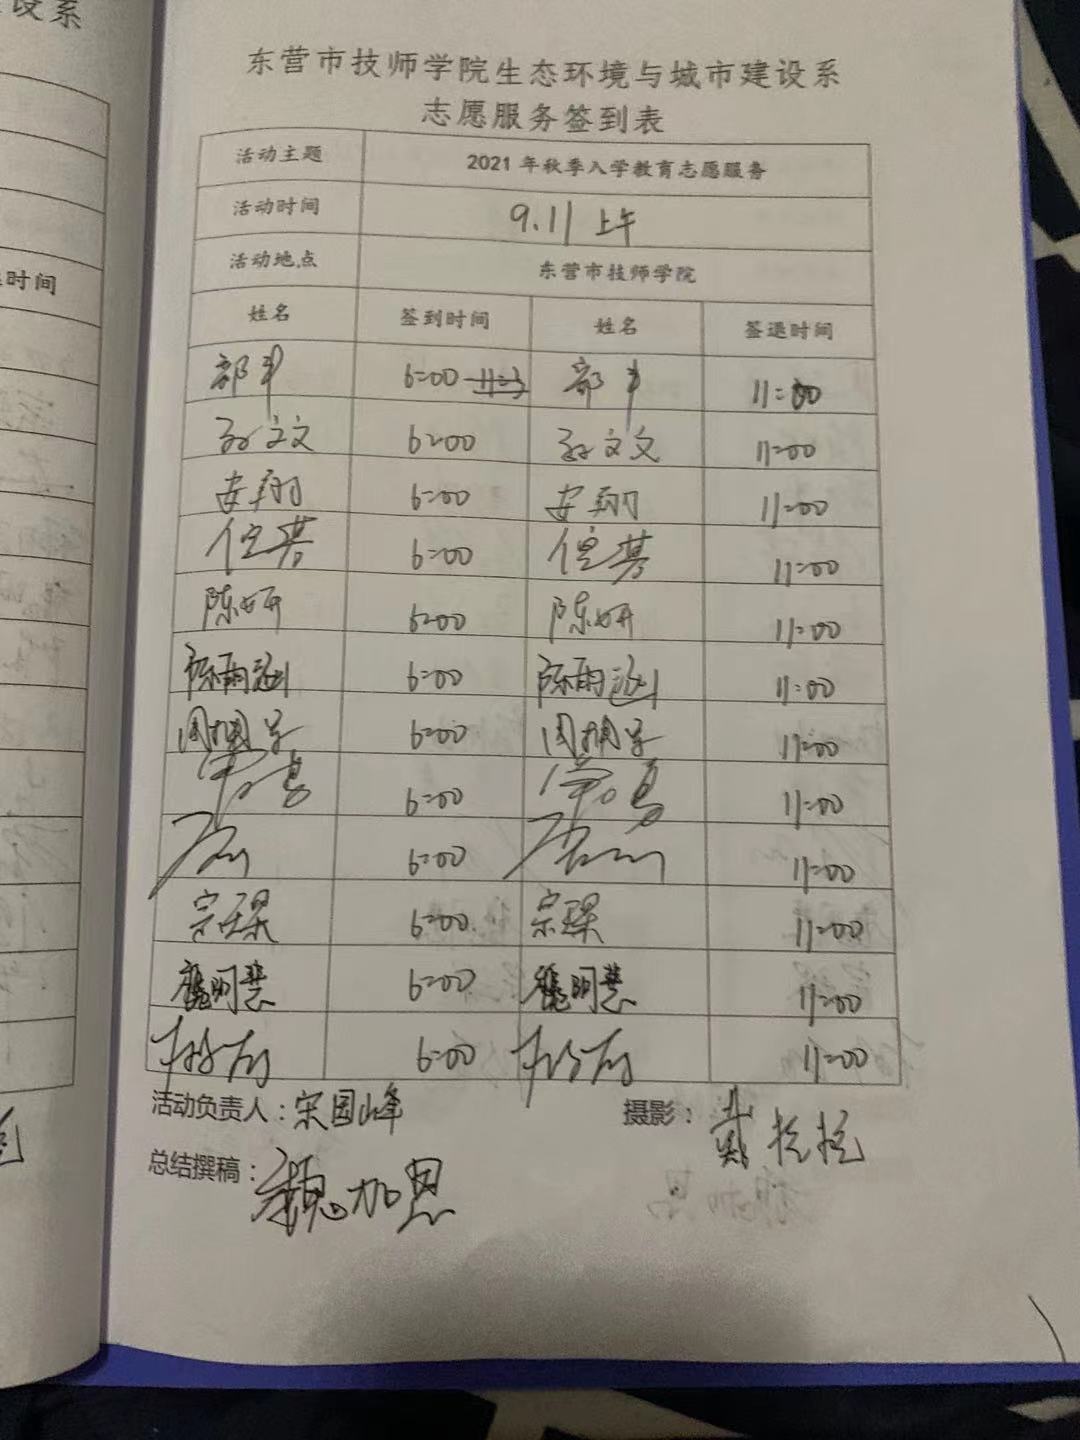 设系
时间
东营市技师学院生态环境与城市建设系
志愿服务签到表
活动主题 2021年秋季入学教育志愿服务
活动时间 9.11 上午
活动地点 东营市技师学院
姓名 签到时间 姓名 签退时间
6:00 11:00
孙文文 6:00 孙文文 11:00
安翔 6:00 安翔 11:00
6:00 11:00
陈妍 6:00 陈妍 11:00
陈雨涵 6:00 陈雨涵 11:00
6:00 11:00
6:00 11:00
6:00 11:00
宗琛 6:00 宗琛 11:00
魏明慧 6:00 魏明慧 11:00
6:00 11:00
活动负责人：宋国峰 摄影：戴
总结撰稿：魏加恩